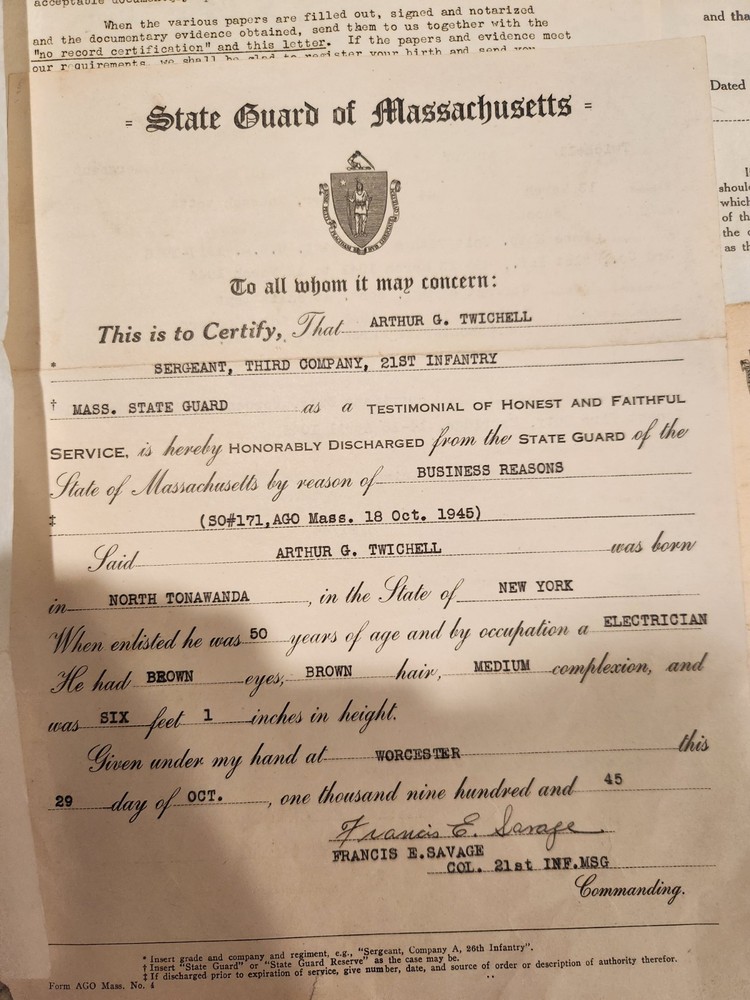 acceptable
When the various papers are filled out, signed and notarized
and the documentary evidence obtained, send them to us together with the
"no record certification" and this letter. If the papers and evidence meet
our requirements, we shall be glad to register your birth and send you
and tha
Dated
shoul
which
of th
the
as th
= State Guard of Massachusetts =
To all whom it may concern:
This is to Certify, That ARTHUR G. TWICHELL
* SERGEANT, THIRD COMPANY, 21ST INFANTRY
† MASS. STATE GUARD as a TESTIMONIAL OF HONEST AND FAITHFUL
SERVICE, is hereby HONORABLY DISCHARGED from the STATE GUARD of the
State of Massachusetts by reason of BUSINESS REASONS
‡ (SO#171,AGO Mass. 18 Oct. 1945)
Said ARTHUR G. TWICHELL was born
in NORTH TONAWANDA, in the State of NEW YORK
When enlisted he was 50 years of age and by occupation a ELECTRICIAN
He had BROWN eyes, BROWN hair, MEDIUM complexion, and
was SIX feet 1 inches in height.
Given under my hand at WORCESTER this
29 day of OCT., one thousand nine hundred and 45
Francis E. Savage
FRANCIS E.SAVAGE
COL. 21st INF.MSG
Commanding.
* Insert grade and company and regiment, e.g., "Sergeant, Company A, 26th Infantry".
† Insert "State Guard" or "State Guard Reserve" as the case may be.
‡ If discharged prior to expiration of service, give number, date, and source of order or description of authority therefor.
Form AGO Mass. No. 4